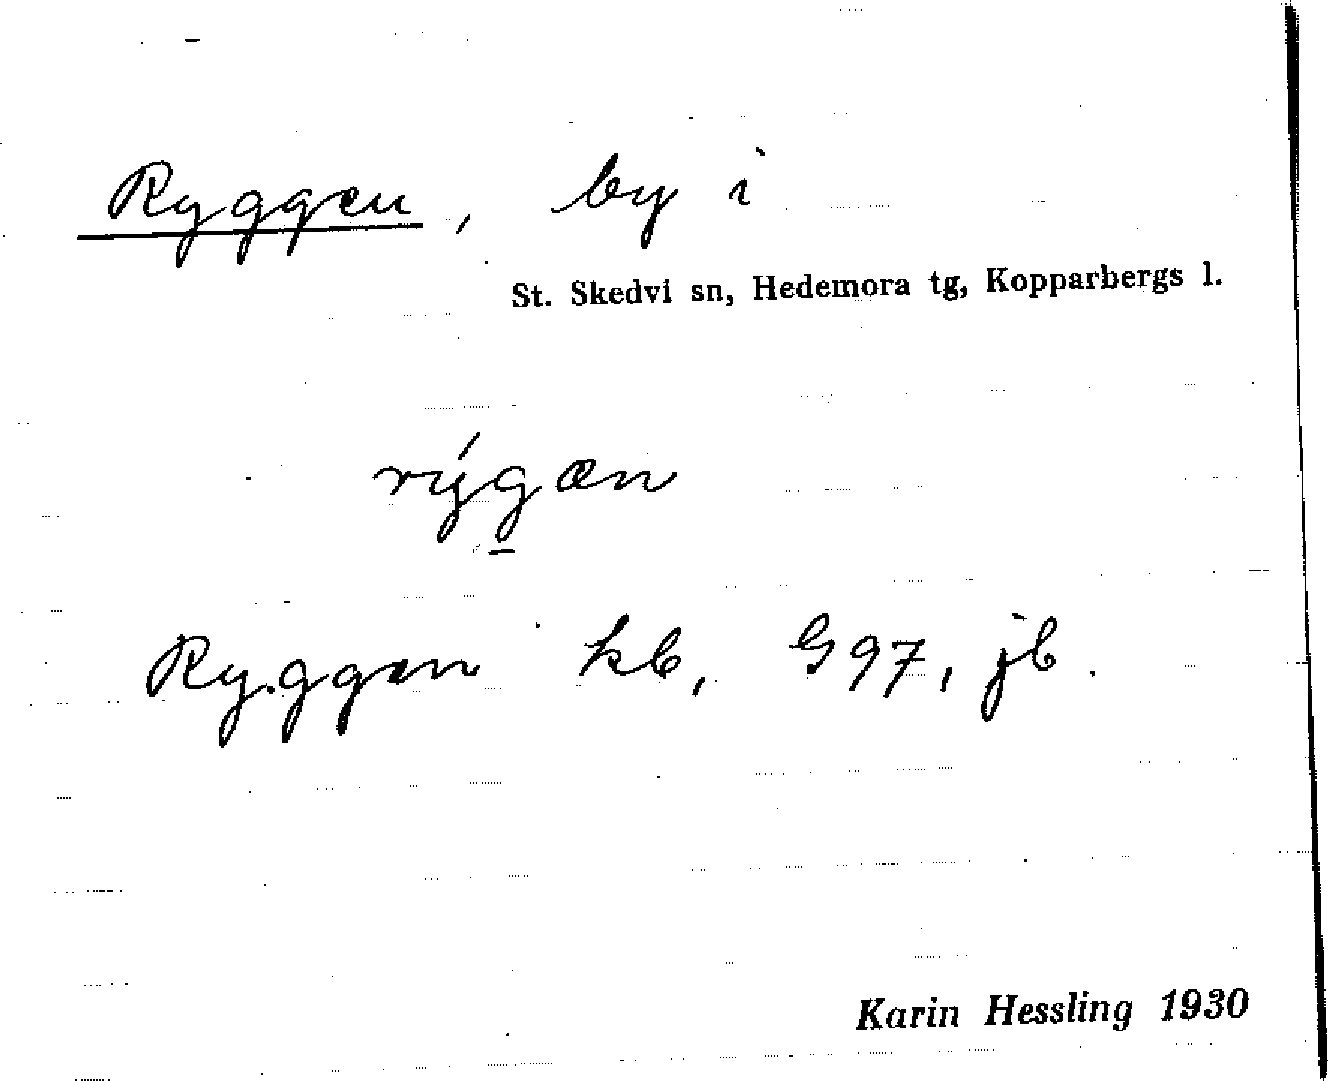 Ryggen, by i
St. Skedvi sn, Hedemora tg, Kopparbergs l.
rýgæn
Ryggen kb, G97, jb.
Karin Hessling 1930